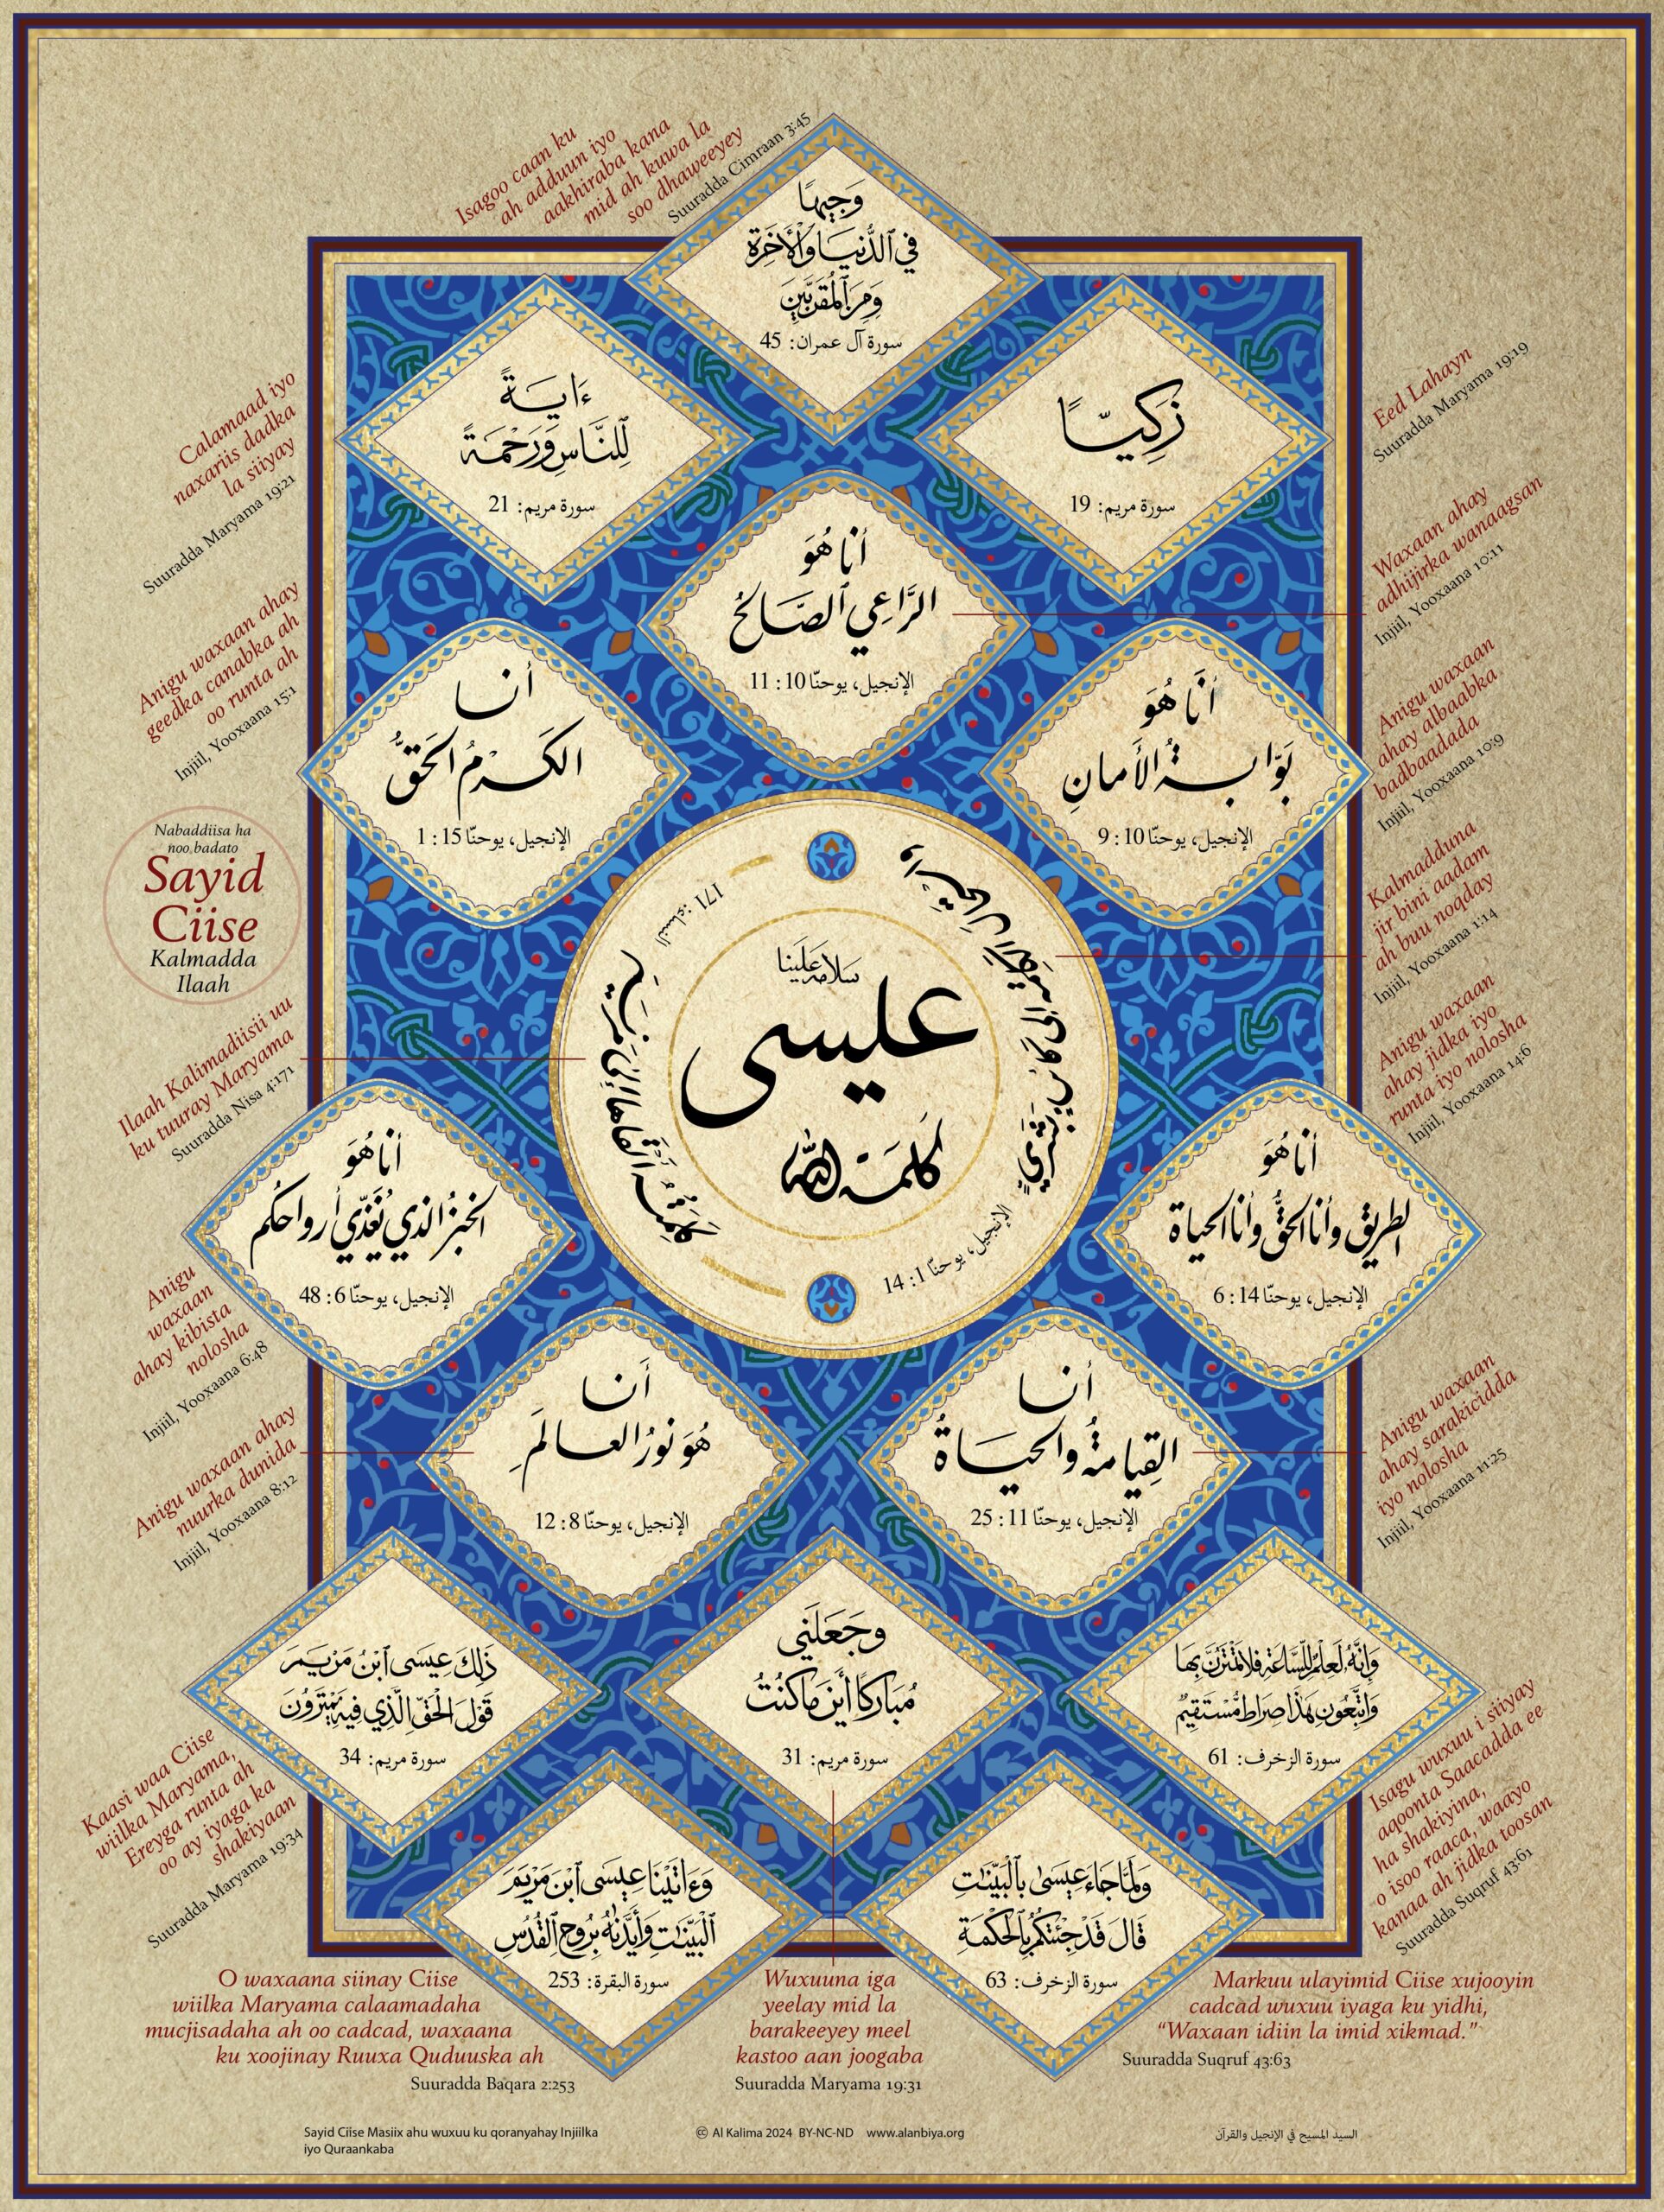 Isagoo caan ku
ah adduun iyo
aakhiraba kana
mid ah kuwa la
soo dhaweeyey
Suuradda Cimraan 3:45
وَجِيهًا
فِي ٱلدُّنْيَا وَٱلْأَخِرَةِ
وَمِنَ ٱلْمُقَرَّبِينَ
سورة آل عمران: 45
Calamaad iyo
naxariis dadka
la siiyay
Suuradda Maryama 19:21
ءَايَةً
لِّلنَّاسِ وَرَحْمَةً
سورة مريم: 21
زَكِيًّا
سورة مريم: 19
Eed Lahayn
Suuradda Maryama 19:19
أنا هُوَ
الرَّاعِي ٱلصَّالِحُ
الإنجيل، يوحنّا 10: 11
Waxaan ahay
adhijirka wanaagsan
Injiil, Yooxaana 10:11
Anigu waxaan ahay
geedka canabka ah
oo runta ah
Injiil, Yooxaana 15:1
أنا
الكَرْمُ الحَقُّ
الإنجيل، يوحنّا 15: 1
أنَا هُوَ
بَوّابةُ الأَمانِ
الإنجيل، يوحنّا 10: 9
Anigu waxaan
ahay albaabka
badbaadada
Injiil, Yooxaana 10:9
Nabaddiisa ha
noo badato
Sayid
Ciise
Kalmadda
Ilaah
سلامه علينا
عليسى
كلمة الله
النساء: 171
الإنجيل، يوحنّا 1: 14
Kalmadduna
jir bini aadam
ah buu noqday
Injiil, Yooxaana 1:14
Ilaah Kalimadiisii uu
ku tuuray Maryama
Suuradda Nisa 4:171
Anigu waxaan
ahay jidka iyo
runta iyo nolosha
Injiil, Yooxaana 14:6
أنا هُوَ
الخبزُ الذي تُغَذّي أرواحكُم
الإنجيل، يوحنّا 6: 48
أنا هُوَ
الطريق وأنا الحقُّ وأنا الحياة
الإنجيل، يوحنّا 14: 6
Anigu
waxaan
ahay kibista
nolosha
Injiil, Yooxaana 6:48
أَنا
هُوَ نورُ العالَمِ
الإنجيل، يوحنّا 8: 12
Anigu waxaan ahay
nuurka dunida
Injiil, Yooxaana 8:12
أنا
القِيامةُ والحَياةُ
الإنجيل، يوحنّا 11: 25
Anigu waxaan
ahay sarakicidda
iyo nolosha
Injiil, Yooxaana 11:25
ذَٰلِكَ عِيسَى ٱبْنُ مَرْيَمَ
قَوْلَ الْحَقِّ الَّذِي فِيهِ يَمْتَرُونَ
سورة مريم: 34
Kaasi waa Ciise
wiilka Maryama,
Ereyga runta ah
oo ay iyaga ka
shakiyaan
Suuradda Maryama 19:34
وَجَعَلَنِي
مُبَارَكًا أَيْنَ مَا كُنتُ
سورة مريم: 31
وَإِنَّهُ لَعِلْمٌ لِّلسَّاعَةِ فَلَا تَمْتَرُنَّ بِهَا
وَاتَّبِعُونِ هَٰذَا صِرَاطٌ مُّسْتَقِيمٌ
سورة الزخرف: 61
Isagu wuxuu i siiyay
aqoonta Saacadda ee
ha shakiyina,
o isoo raaca, waayo
kanaa ah jidka toosan
Suuradda Suqruf 43:61
وَءَاتَيْنَا عِيسَى ٱبْنَ مَرْيَمَ
ٱلْبَيِّنَٰتِ وَأَيَّدْنَٰهُ بِرُوحِ ٱلْقُدُسِ
سورة البقرة: 253
وَلَمَّا جَاءَ عِيسَىٰ بِٱلْبَيِّنَٰتِ
قَالَ قَدْ جِئْتُكُم بِٱلْحِكْمَةِ
سورة الزخرف: 63
O waxaana siinay Ciise
wiilka Maryama calaamadaha
mucjisadaha ah oo cadcad, waxaana
ku xoojinay Ruuxa Quduuska ah
Suuradda Baqara 2:253
Wuxuuna iga
yeelay mid la
barakeeyey meel
kastoo aan joogaba
Suuradda Maryama 19:31
Markuu ulayimid Ciise xujooyin
cadcad wuxuu iyaga ku yidhi,
“Waxaan idiin la imid xikmad.”
Suuradda Suqruf 43:63
Sayid Ciise Masiix ahu wuxuu ku qoranyahay Injiilka
iyo Quraankaba
🄯 Al Kalima 2024 BY-NC-ND www.alanbiya.org
السيد المسيح في الإنجيل والقرآن